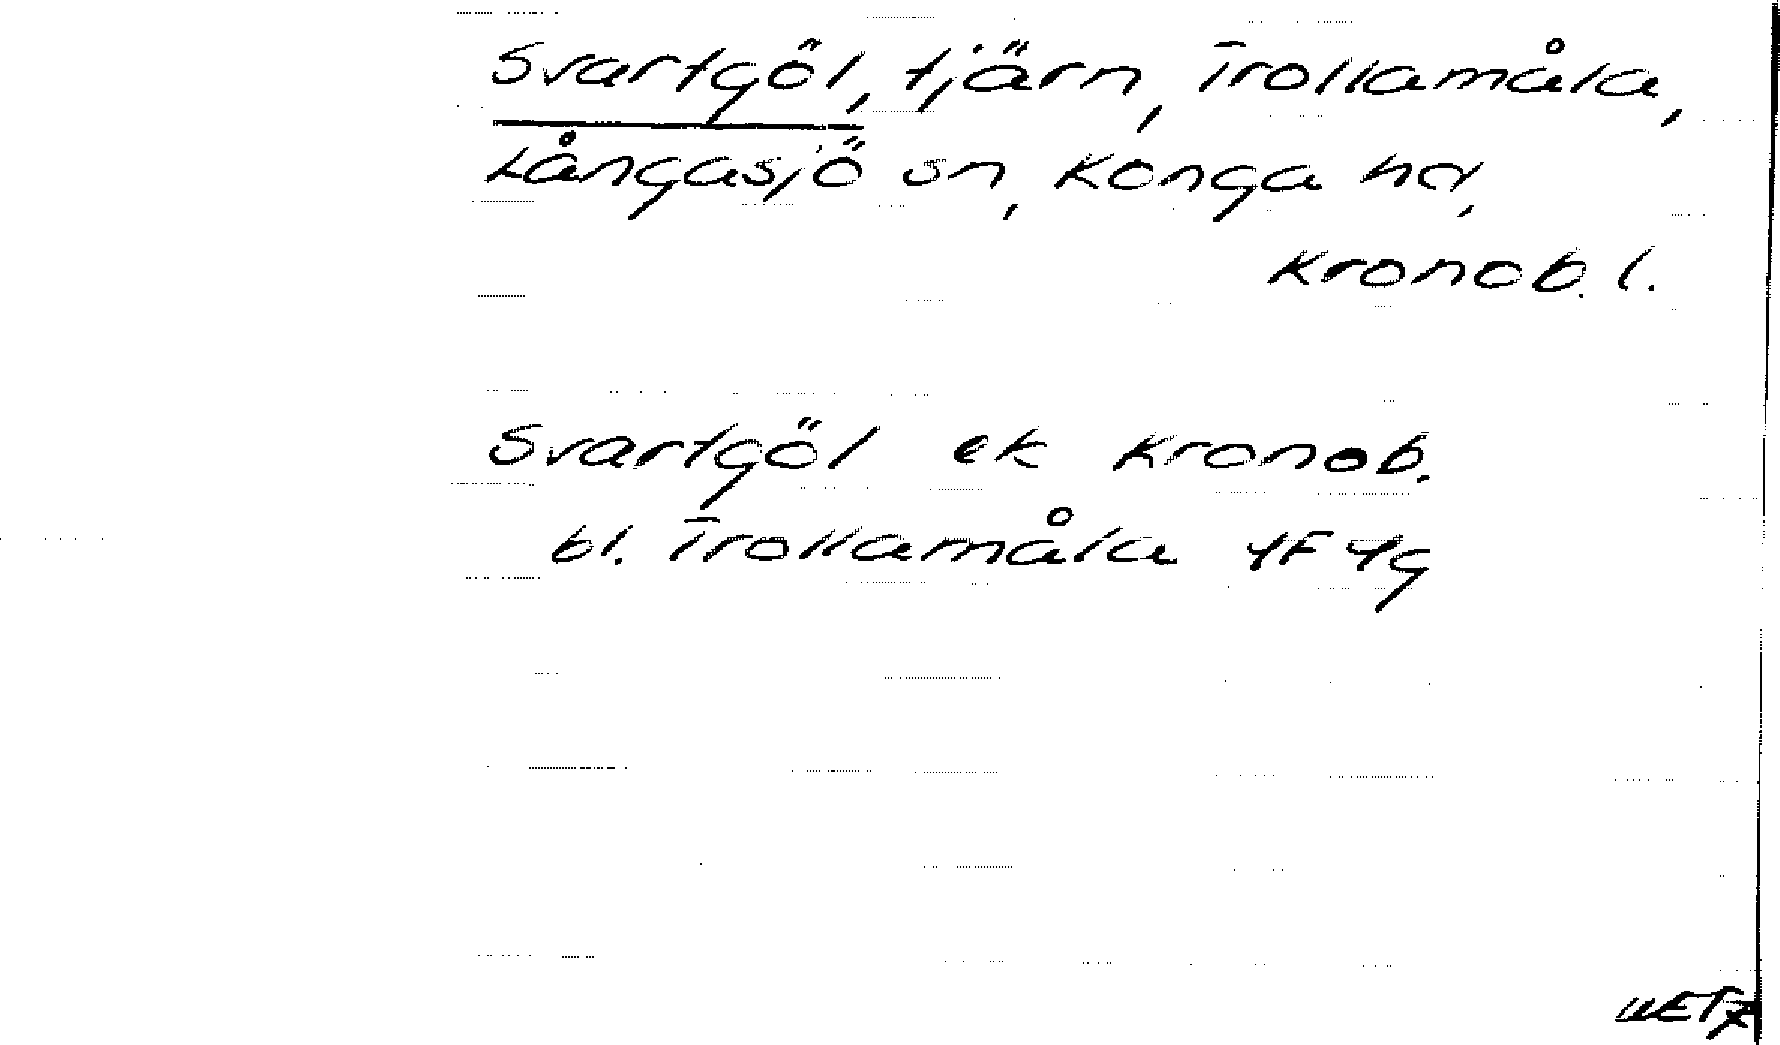 Svartgöl, tjärn, Trollamåla,
Långasjö sn, Konga hd,
Kronob. l.
Svartgöl ek Kronob.
bl. Trollamåla 4F 4g